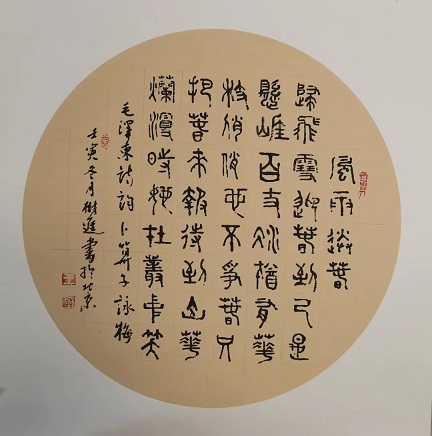 風雨送春
歸飛雪迎春到已是
懸崖百丈冰猶有華
枝俏俏也不爭春只
把春來報待到山華
爛漫時她在叢中笑
毛澤東詩詞卜算子詠梅
壬寅冬月書於北京